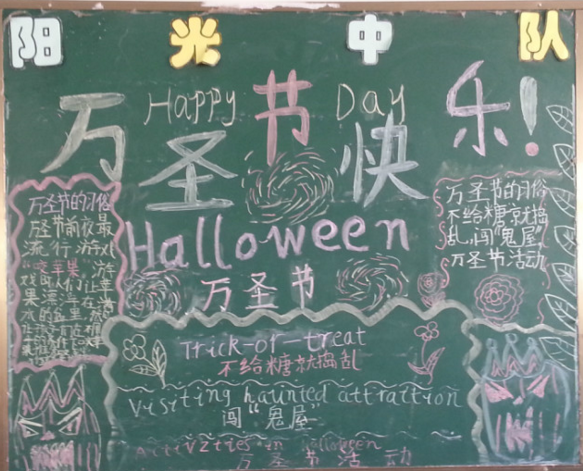 阳光中队
Happy Day
万圣节快乐!
Halloween
万圣节
万圣节的习俗
万圣节前夜最
流行游戏
万圣节的习俗
不给糖就捣
乱,闯"鬼屋"
万圣节活动
Trick-or-treat
不给糖就捣乱
Visiting haunted attrattion
闯"鬼屋"
Activzties in halloween
万圣节活动